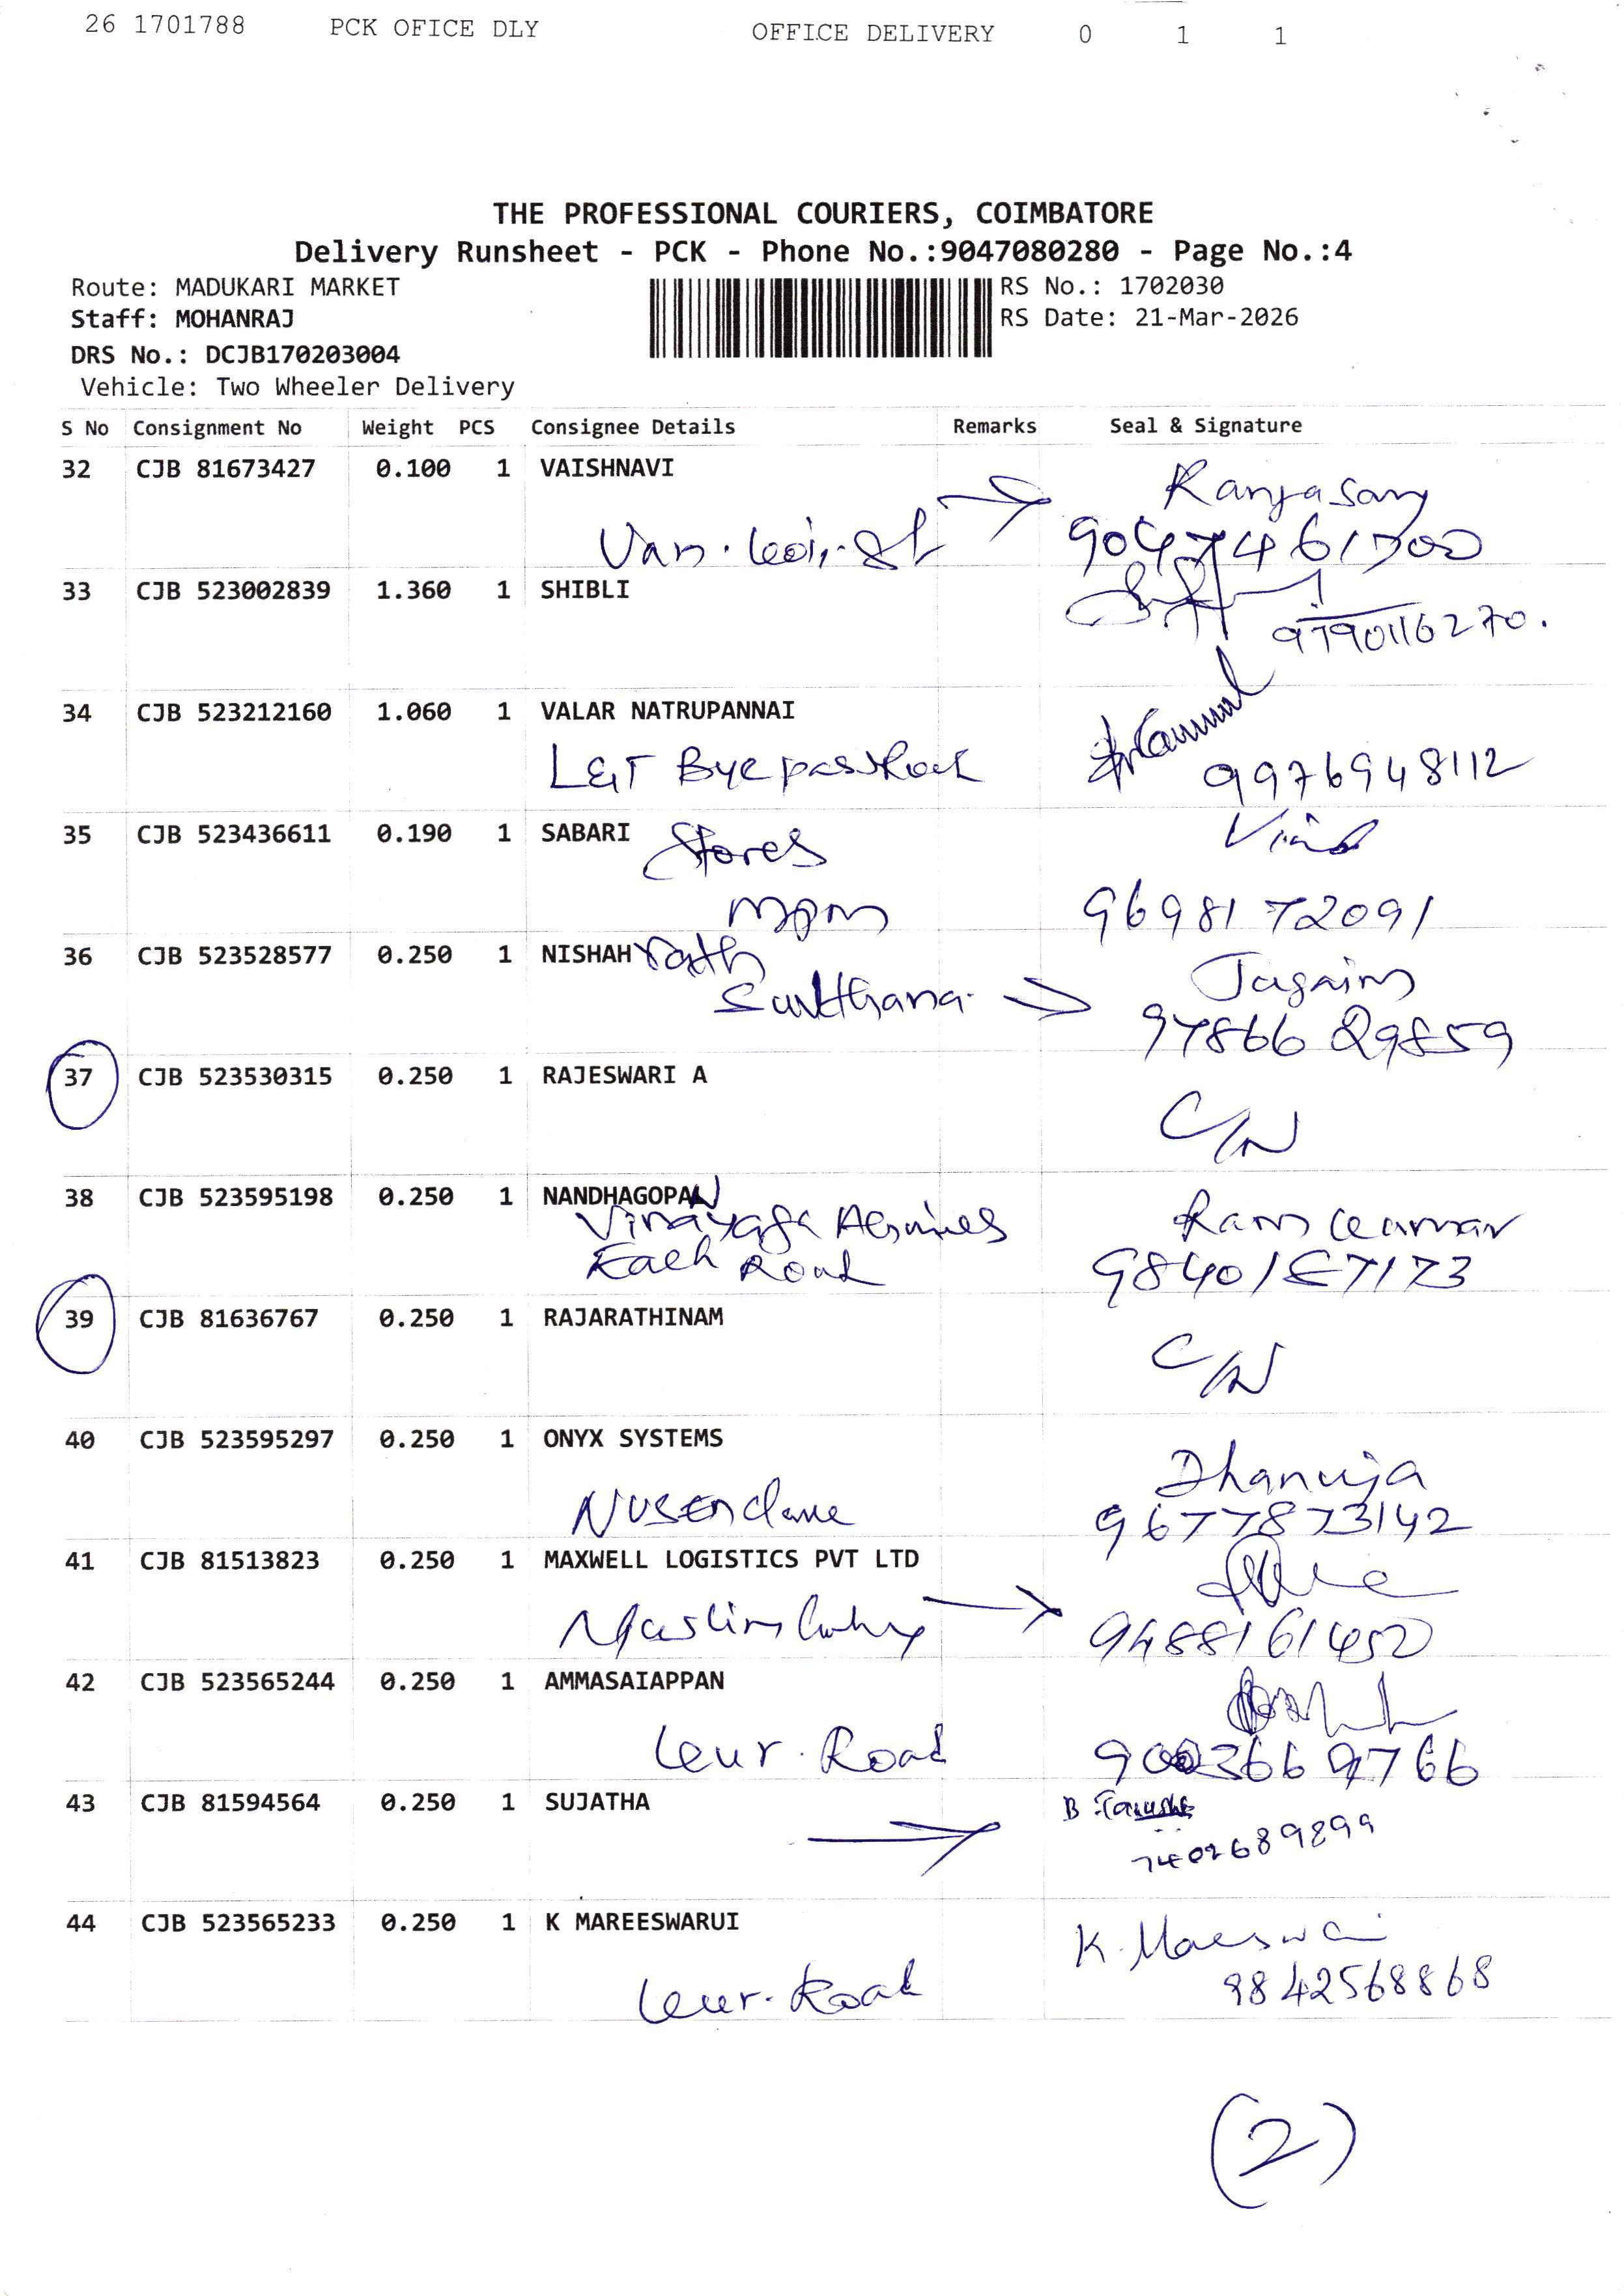 26 1701788 PCK OFICE DLY OFFICE DELIVERY 0 1 1
THE PROFESSIONAL COURIERS, COIMBATORE
Delivery Runsheet - PCK - Phone No.:9047080280 - Page No.:4
Route: MADUKARI MARKET RS No.: 1702030
Staff: MOHANRAJ RS Date: 21-Mar-2026
DRS No.: DCJB170203004
Vehicle: Two Wheeler Delivery
S No Consignment No Weight PCS Consignee Details Remarks Seal & Signature
32 CJB 81673427 0.100 1 VAISHNAVI
33 CJB 523002839 1.360 1 SHIBLI
9790116270.
34 CJB 523212160 1.060 1 VALAR NATRUPANNAI
L&T Bye pass
9976948112
35 CJB 523436611 0.190 1 SABARI Stores
mpm 9698172091
36 CJB 523528577 0.250 1 NISHAH
97866 29859
37 CJB 523530315 0.250 1 RAJESWARI A
C/N
38 CJB 523595198 0.250 1 NANDHAGOPAN
Road
39 CJB 81636767 0.250 1 RAJARATHINAM
C/N
40 CJB 523595297 0.250 1 ONYX SYSTEMS
Dhanuja
9677873142
41 CJB 81513823 0.250 1 MAXWELL LOGISTICS PVT LTD
9488161450
42 CJB 523565244 0.250 1 AMMASAIAPPAN
Road
43 CJB 81594564 0.250 1 SUJATHA
7402689899
44 CJB 523565233 0.250 1 K MAREESWARUI
9842568868
(2)